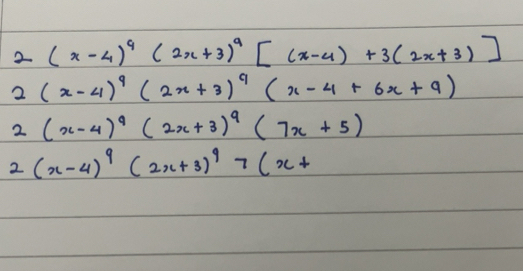 2 (x-4)⁹ (2x+3)⁹ [ (x-4) +3(2x+3) ]
2 (x-4)⁹ (2x+3)⁹ (x-4 + 6x + 9)
2 (x-4)⁹ (2x+3)⁹ (7x + 5)
2 (x-4)⁹ (2x+3)⁹ 7 (x +